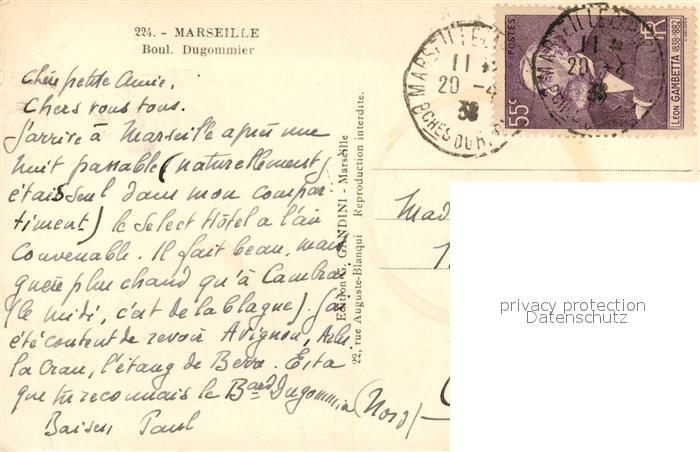 224. - MARSEILLE
Boul. Dugommier
Chère petite Amie,
Chers vous tous.
J'arrive à Marseille après une
nuit passable (naturellement
étais seul dans mon compar-
timent) le Select Hôtel a l'air
convenable. Il fait beau, mais
guère plus chaud qu'à Cambrai
(le midi, c'est de la blague). J'ai
été content de revoir Avignon, Arles
la Crau, l'étang de Berre. Est-ce
que tu reconnais le Bard Dugommier
Baisers Paul
Edition G. GANDINI - Marseille
22, rue Auguste-Blanqui Reproduction interdite.
MARSEILLE
11
20 -4
38
BCHES DU R.
MARSEILLE
11
20 -4
38
BCHES
POSTES
RF
55c
LÉON GAMBETTA 1838-1882
Mad
(Nord)
privacy protection
Datenschutz